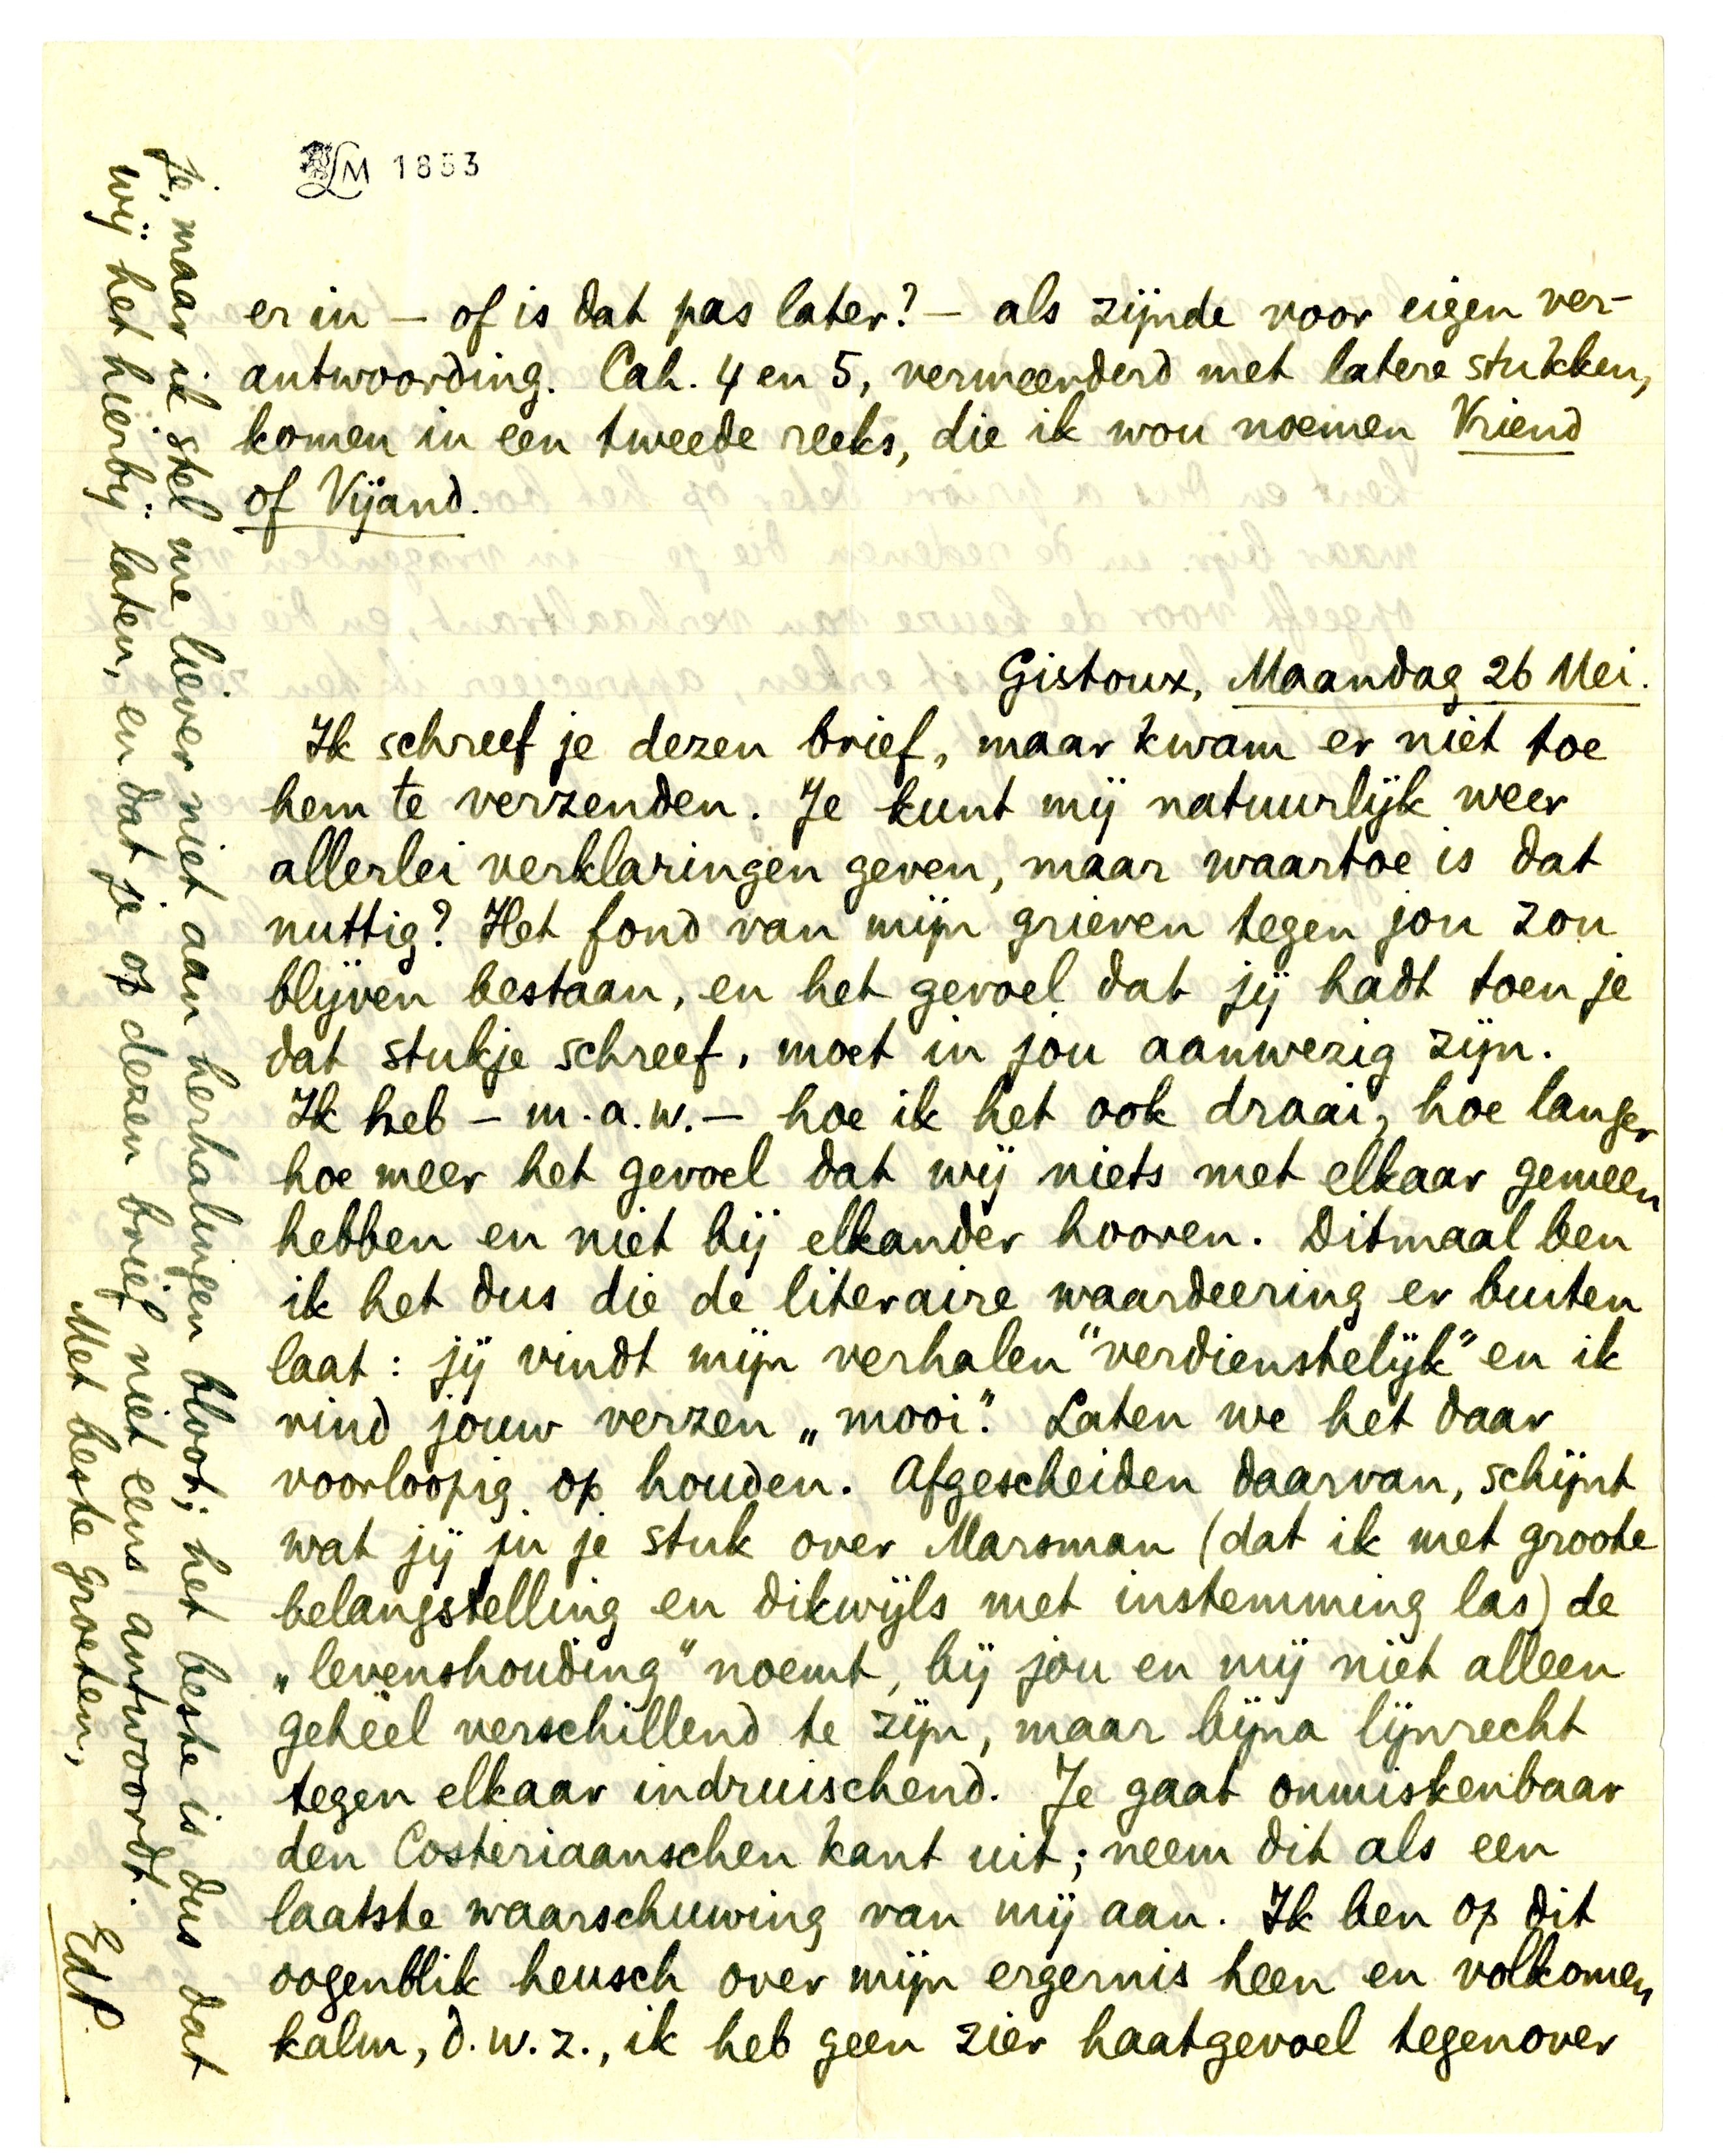 LM 1853
er in — of is dat pas later? — als zijnde voor eigen ver-
antwoording. Cah. 4 en 5, vermeerderd met latere stukken,
komen in een tweede reeks, die ik wou noemen Vriend
of Vijand.
Gistoux, Maandag 26 Mei.
Ik schreef je dezen brief, maar kwam er niet toe
hem te verzenden. Je kunt mij natuurlijk weer
allerlei verklaringen geven, maar waartoe is dat
nuttig? Het fond van mijn grieven tegen jou zou
blijven bestaan, en het gevoel dat jij hadt toen je
dat stukje schreef, moet in jou aanwezig zijn.
Ik heb — m.a.w. — hoe ik het ook draai, hoe langer
hoe meer het gevoel dat wij niets met elkaar gemeen
hebben en niet bij elkander hooren. Ditmaal ben
ik het dus die de literaire waardeering er buiten
laat: jij vindt mijn verhalen "verdienstelijk" en ik
vind jouw verzen „mooi". Laten we het daar
voorloopig op houden. Afgescheiden daarvan, schijnt
wat jij in je stuk over Marsman (dat ik met groote
belangstelling en dikwijls met instemming las) de
„levenshouding" noemt, bij jou en mij niet alleen
geheel verschillend te zijn, maar bijna lijnrecht
tegen elkaar indruischend. Je gaat onmiskenbaar
den Costeriaanschen kant uit; neem dit als een
laatste waarschuwing van mij aan. Ik ben op dit
oogenblik heusch over mijn ergernis heen en volkomen
kalm, d.w.z., ik heb geen zier haatgevoel tegenover
je, maar ik stel me liever niet aan herhalingen bloot; het beste is dus dat
wij het hierbij laten, en dat je op dezen brief niet eens antwoordt.
Met beste groeten,
EdP.